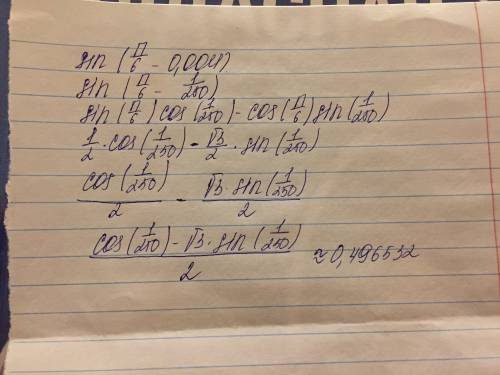 sin(π/6 - 0,004).
sin(π/6 - 1/250)
sin(π/6)cos(1/250) - cos(π/6)sin(1/250)
1/2 · cos(1/250) - √3/2 · sin(1/250)
cos(1/250)/2 - √3 · sin(1/250)/2
(cos(1/250) - √3 · sin(1/250))/2 ≈ 0,496532